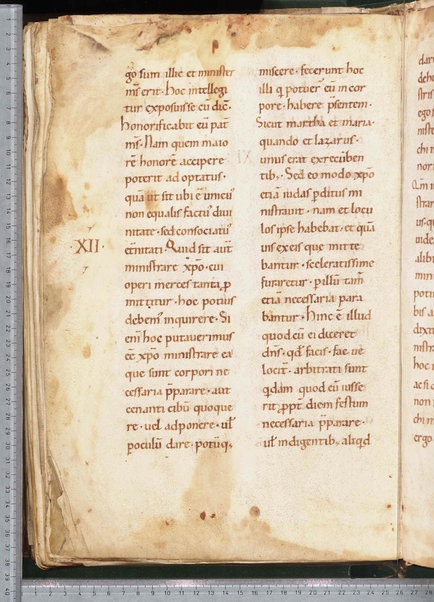 go sum illic et minister
mʼs erit · hoc intellegi
tur exposuisse cū dic̄ ·
honorificabit eū pat̄
mʼs · Nam quem maio
rē honorē accipere
poterit adoptatus ·
quā ut sit ubi ē unicuſ
non equalis factus diui
nitate · sed consociatuſ
et̄nitati · Quid sit aut̄
XII ·
ministrare xp̄o · cui
operi merces tanta p̱
mittitur · hoc potius
debem̕ inquirere · Si
eni hoc putauerimus
eē xp̄o ministrare ea
que sunt corpori ne
cessaria p̄parare · aut
cenanti cibū quoque
re · uel adponere · ul̕
poculū dare · potūq;
miscere · fecerunt hoc
illi q̇ potuer̄ eū in cor
pore · habere p̄sentem ·
Sicut martha et maria ·
quando et lazarus ·
unus erat ex recūben
tib; · Sed eo modo xp̄o
etiā iudas p̱ditus mi
nistrauit · nam et locu
los ipse habebat · et quā
uis ex eis que mitte
bantur · sceleratissime
furaretur · p̱ illū tam̄
etiā necessaria para
bantur · hinc ē illud
quod cū ei diceret
dn̄s · qđ facis · fac ue
lociť · arbitrati sunt
q̇dam quod eū iusse
rit ppt̄ diem festum
necessaria p̄parare ·
ul̕ indigentib; aliqđ